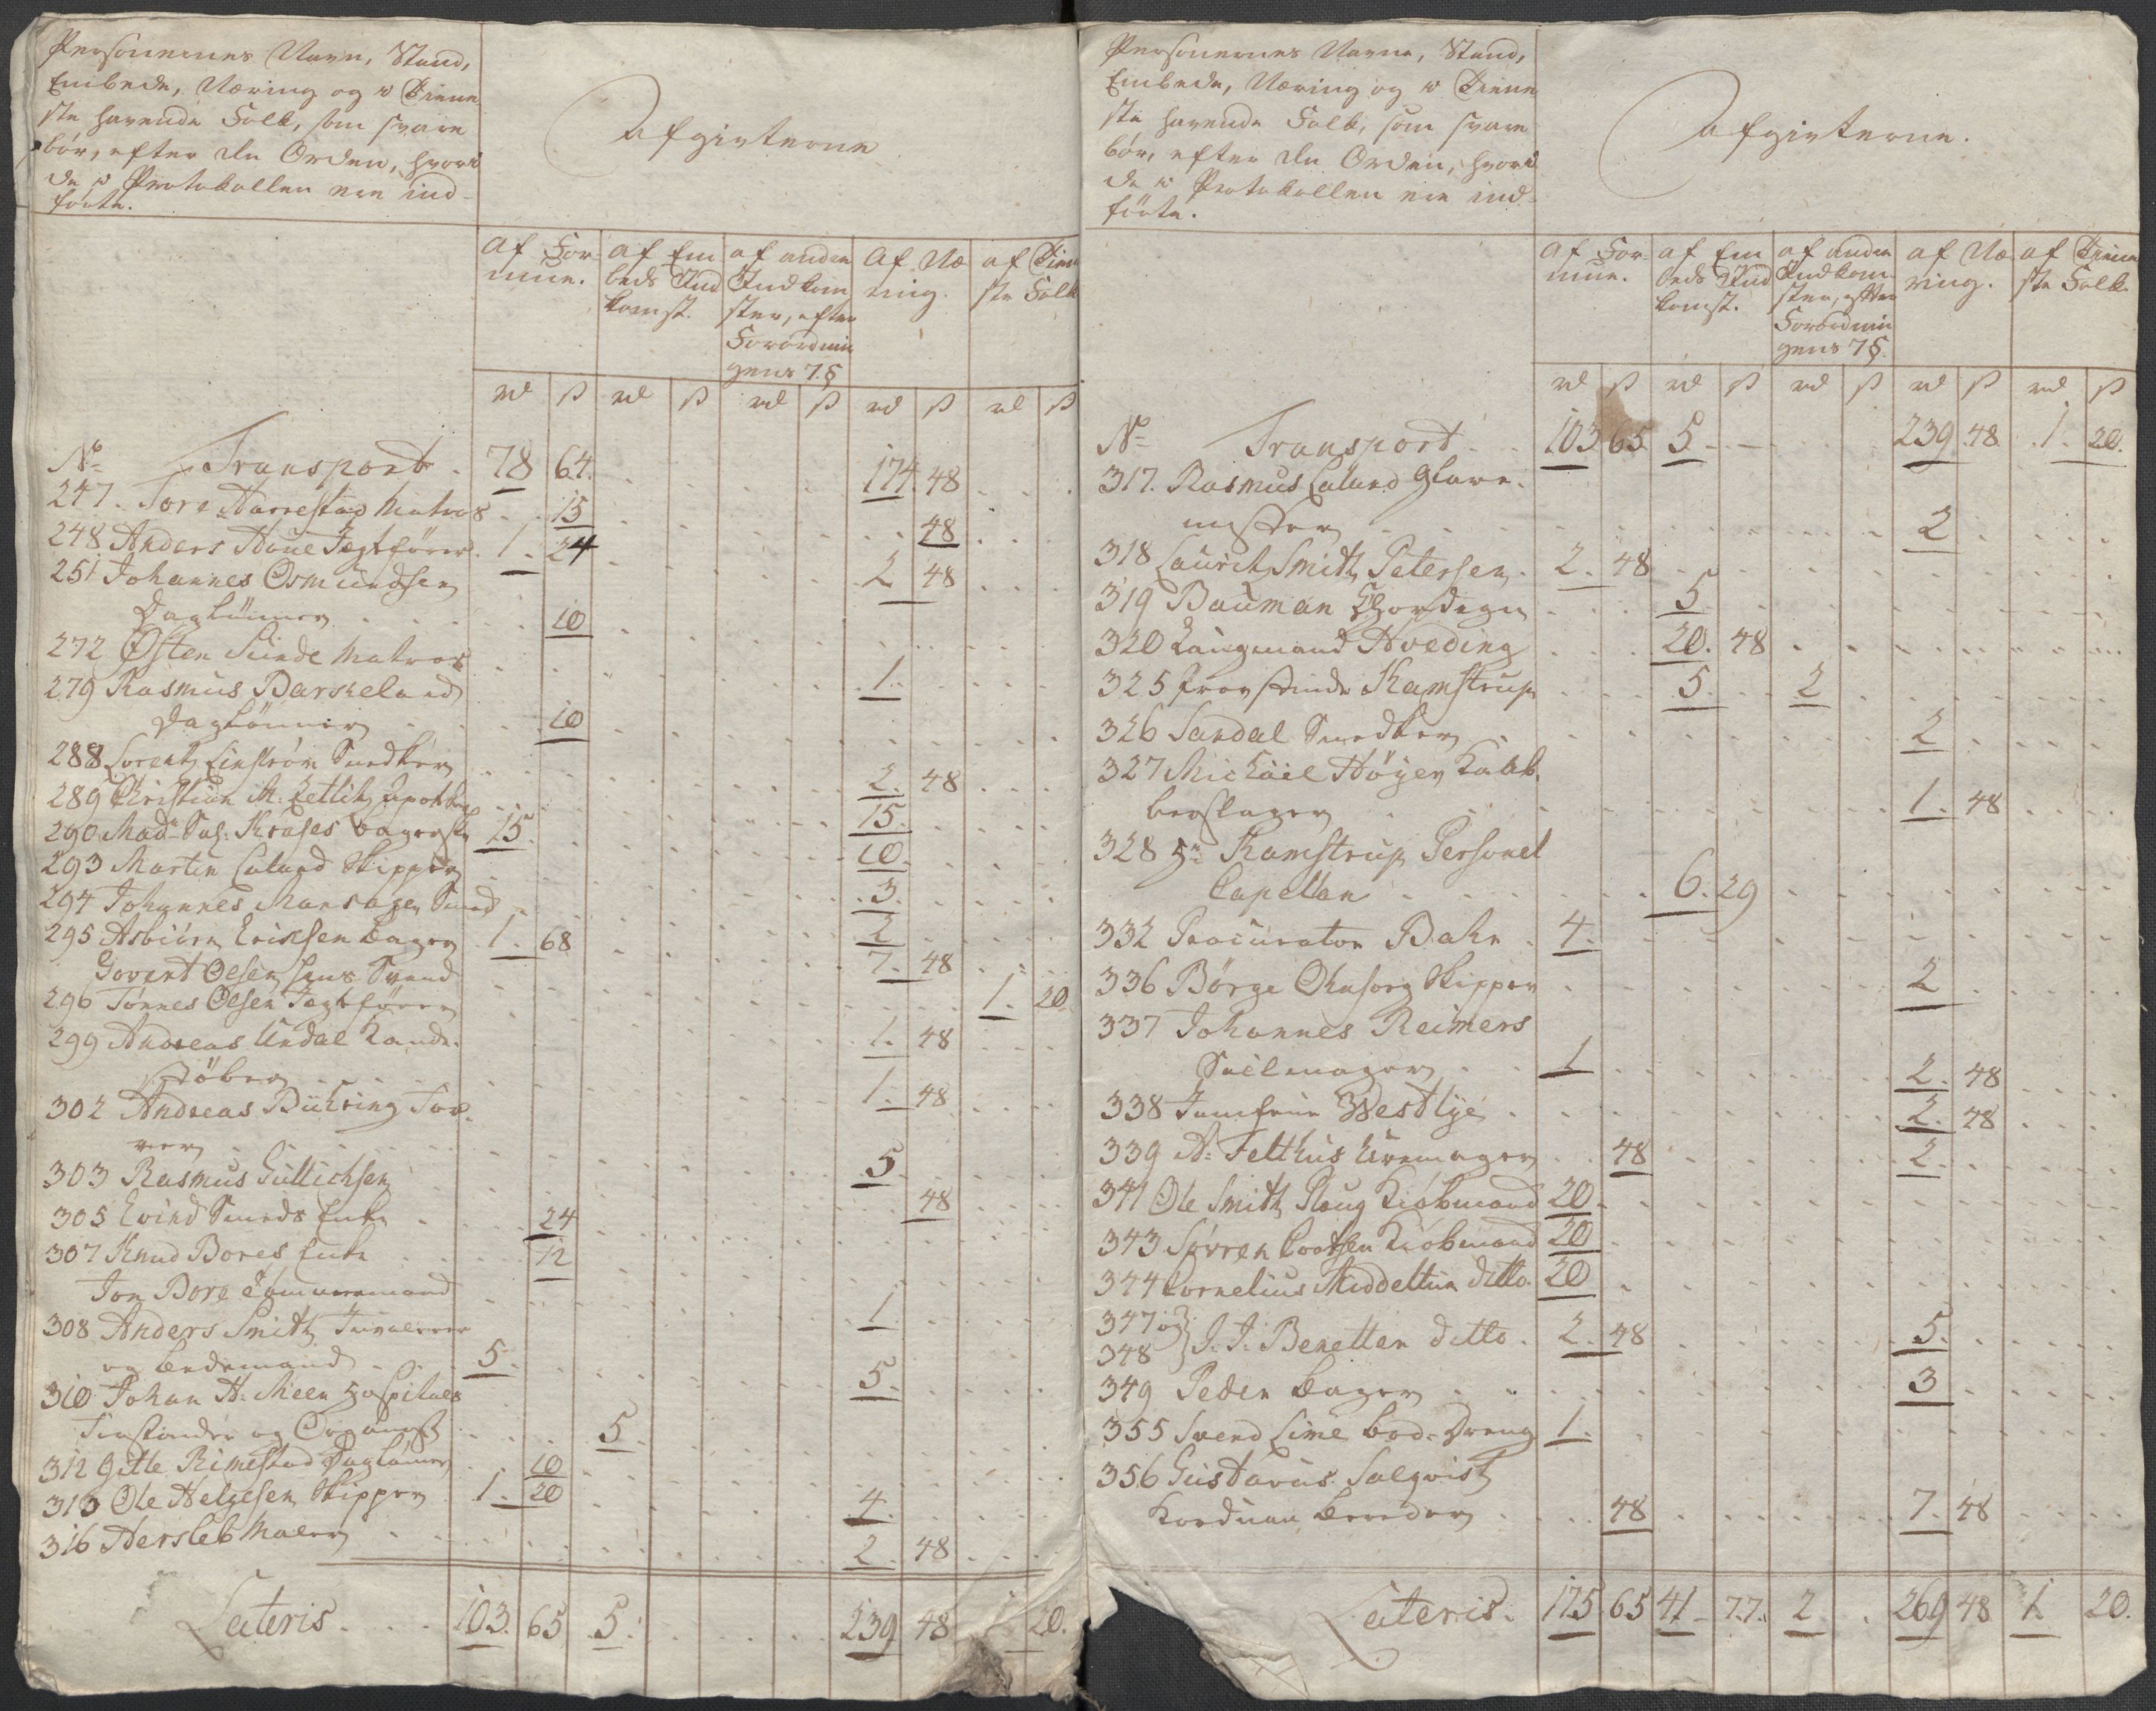 Personernes Navn, Stand,
Embede, Næring og i Tiene
ste havende Folk, som svare
bør, efter den Orden, hvori
de i Protokollen ere ind-
førte.
Afgivterne
Af For-
mue.
af Em
beds Ind
komst.
af anden
Indkom
ster, efter
Forordnin
gens 7. §
Af Næ
ring.
af Tiene
ste Folk
rd ß rd ß rd ß rd ß rd ß
No Transport 78 64. 174. 48
247. Tore Harrestad Matros 15 48
248 Anders Haue Jegtfører 1. 24 2 48
251 Johannes Osmundsen
Daglønner 10
272 Østen Sunde Matros 1.
279 Rasmus Barkeland
Daglønner 10
288 Lorentz Linstrøm Snedker 2. 48
289 Christian M. Zetlitz Apotheker 15.
290. Madme Sal. Kruses Bagerske 15. 10.
293 Martin Caland Skipper 3.
294 Johannes Mansager Smed 2
295 Asbiørn Erichsen Bager 1. 68 7. 48
Govert Olsen hans Svend 1. 20
296 Tønnes Olsen Jegtfører 1. 48
299 Andreas Undal Kande-
støber 1. 48
302 Andreas Bühring Far-
ver 5.
303 Rasmus Gullichsen 48
305 Evind Smeds Enke 24
307 Knud Bores Enke 12
Jon Bore Tømmermand 1
308 Anders Smith Juvelerer
og Bedemand 5. 5.
310 Johan H. Meen Hospitals
Forstander og Organist 5.
312 Gitle Rimestad Daglønner 10
313 Ole Helgesen Skipper 1. 20 4.
316 Hersleb Maler 2. 48
Lateris. 103. 65 5. 239 48 1 20.
Personernes Navne, Stand,
Embede, Næring og i Tiene
ste havende Folk, som svare
bør, efter den Orden, hvori
de i Protokollen ere ind-
førte.
Afgivterne.
Af For-
mue.
af Em
beds Ind
komst.
af anden
Indkom-
ster, efter
Forordnin
gens 7 §.
af Næ
ring.
af Tiene
ste Folk.
rd ß rd ß rd ß rd ß rd ß
No Transport 103 65 5 239 48 1. 20.
317. Rasmus Caland Glar-
mester 2
318 Lauritz Smith Petersen 2. 48
319 Bauman Chordegn 5
320 Laugmand Hveding 20. 48
325 Provstinde Kamstrup 5. 2
326 Sandal Snedker 2
327 Michael Höyer Kaab-
berslager 1. 48
328 Hr Kamstrup Personel
Capellan 6. 29
332 Procurator Bahr 4.
336 Börge Ohnsorg Skipper 2
337 Johannes Reimers
Seilmager 1 2. 48
338 Jomfrue Westlye 2. 48
339 A. Felthus Uhrmager 48 2.
341 Ole Smith Ploug Kiøbmand 20.
343 Sörren Cortsen Kiøbmand 20
344 Cornelius Middelthun ditto. 20
347 og
348 } J. J. Benetter ditto. 2. 48 5.
349 Peder Bager 3
355 Svend Lime bod-Dreng 1.
356 Gustavus Salqvist
Korduan Bereder 48 7. 48
Lateris. 175 65 41 77. 2 269 48 1. 20.